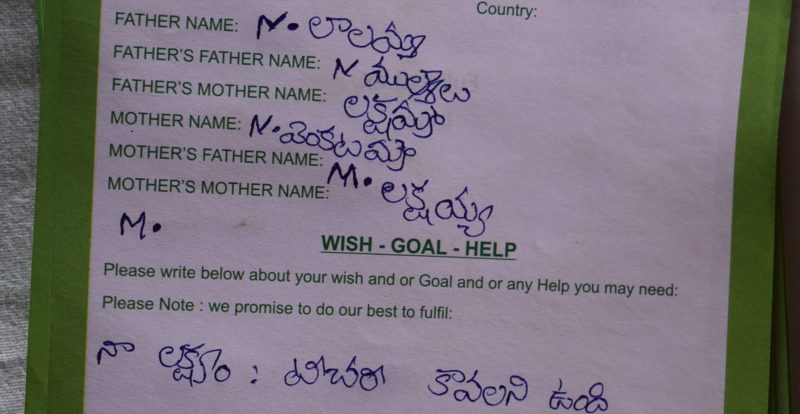 Country:
FATHER NAME: N. లాలయ్య
FATHER'S FATHER NAME: N
FATHER'S MOTHER NAME: లక్షమ్మ
MOTHER NAME: N. వెంకటమ్మ
MOTHER'S FATHER NAME:
MOTHER'S MOTHER NAME: M. లక్షయ్య
M.
WISH - GOAL - HELP
Please write below about your wish and or Goal and or any Help you may need:
Please Note : we promise to do our best to fulfil:
నా లక్ష్యం : టీచర్ కావలని ఉంది